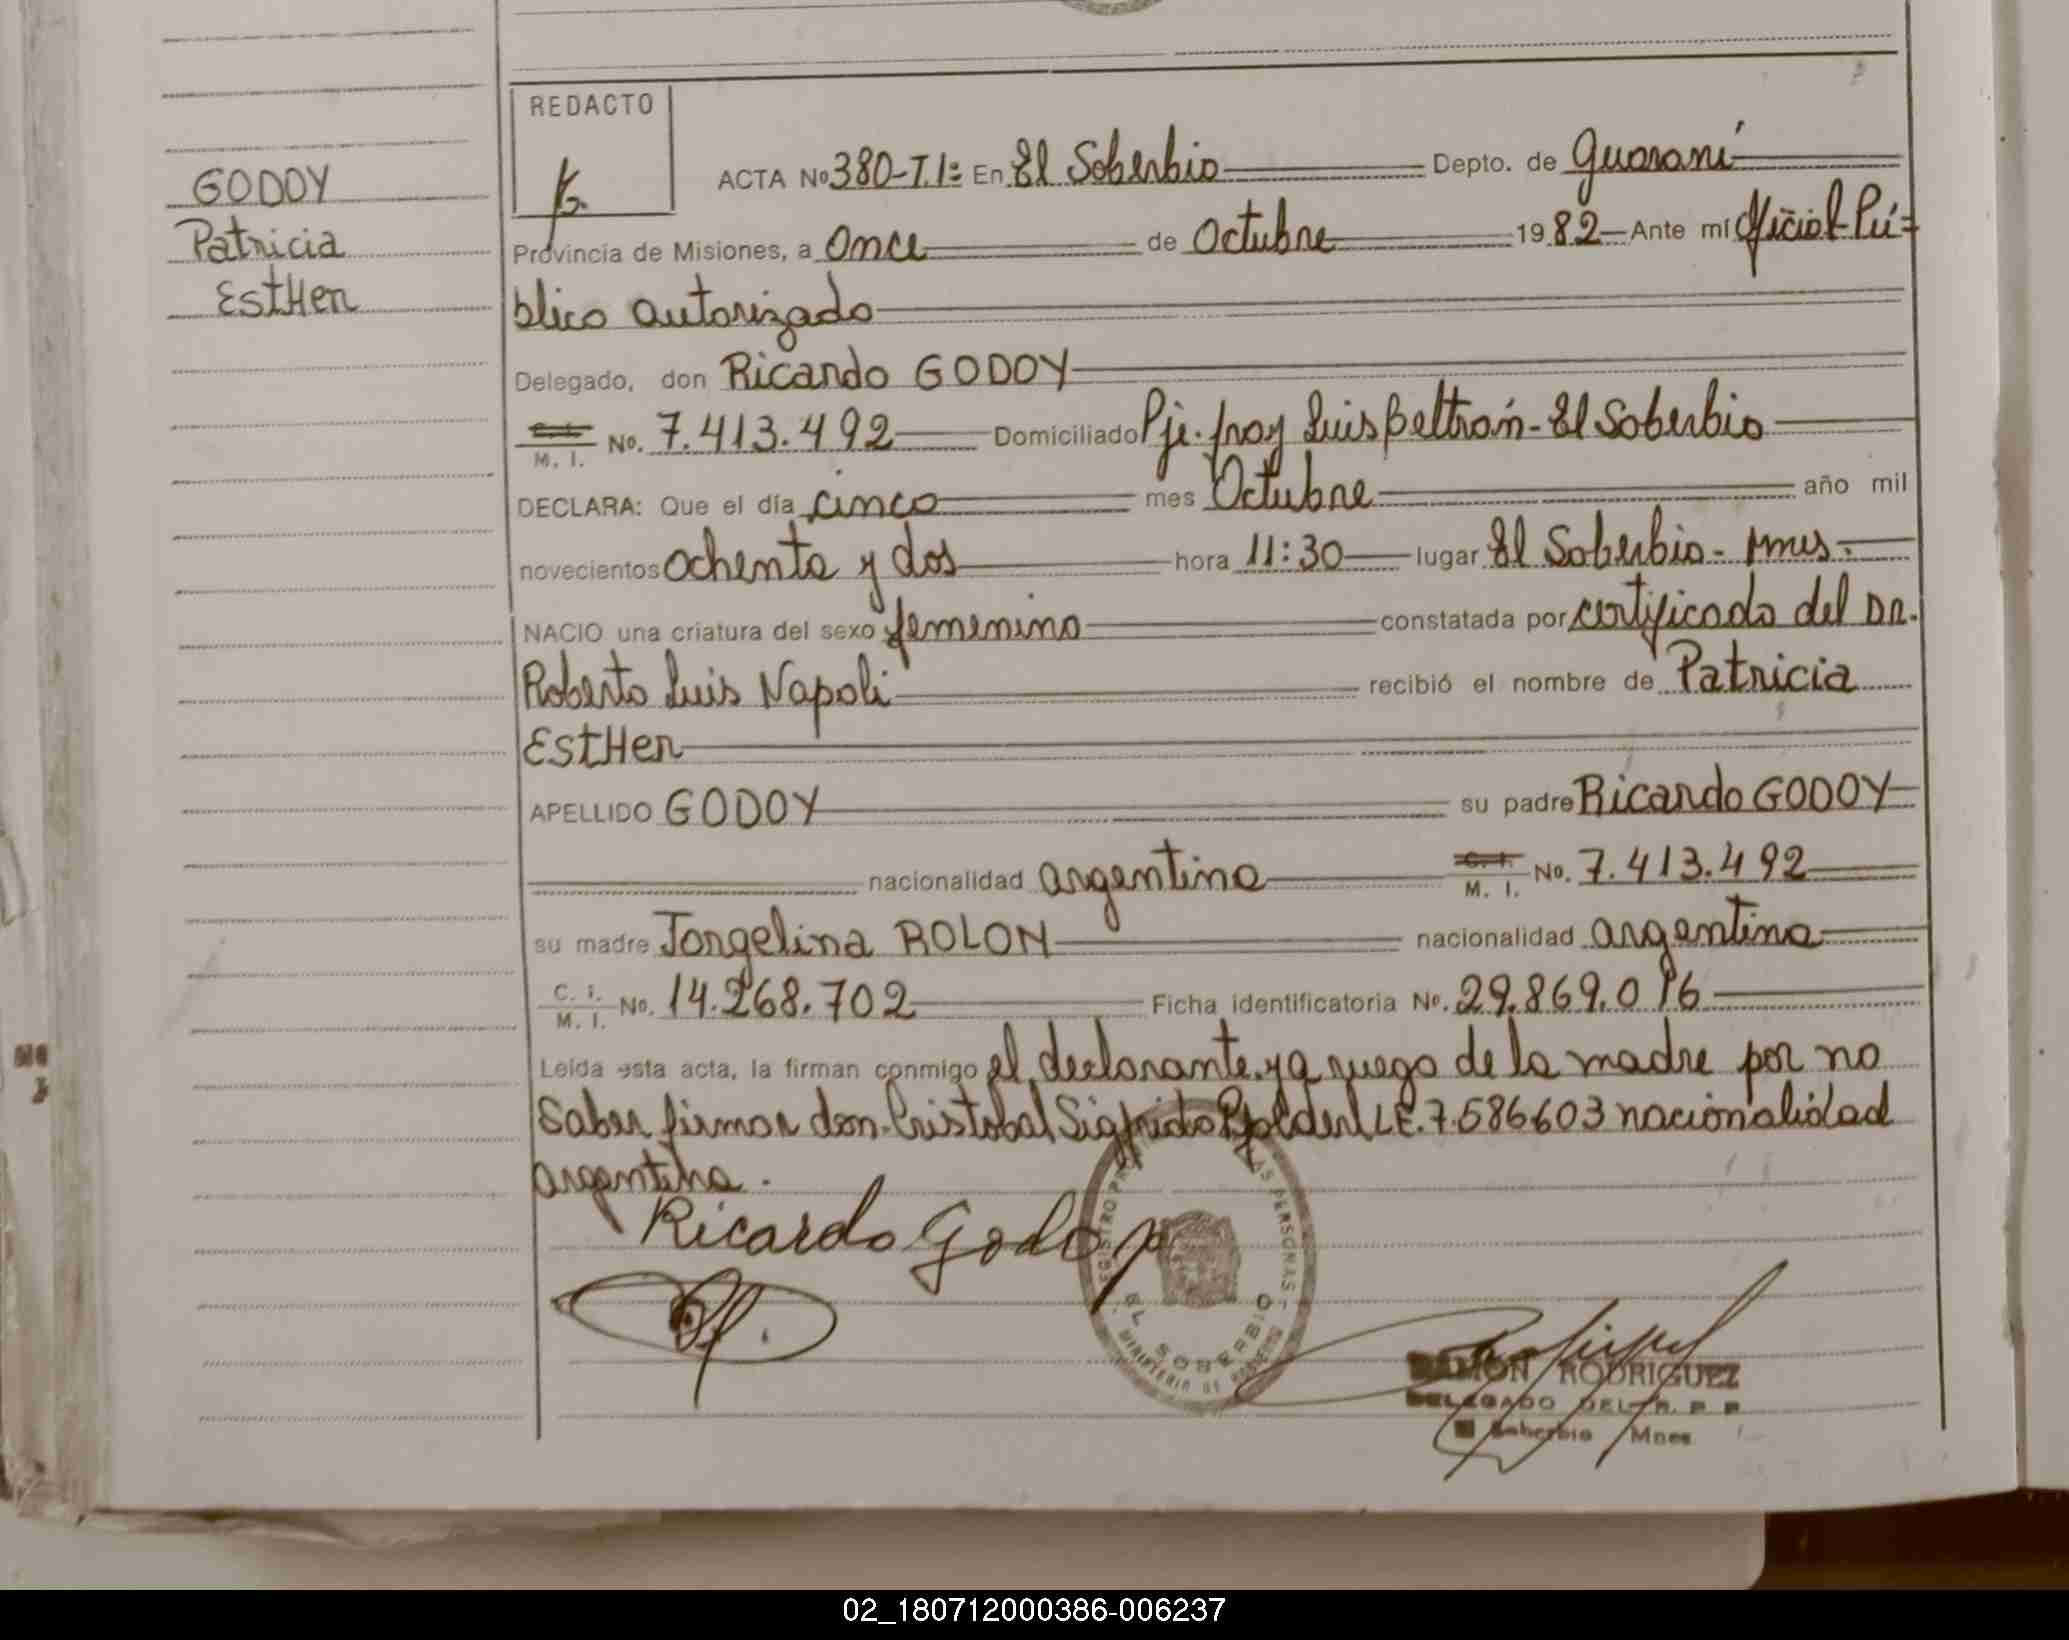 GODOY
Patricia
EstHer
REDACTO
ACTA Nº 380-T.1= En El Soberbio Depto. de Guaraní
Provincia de Misiones, a Once de Octubre 1982 Ante mí Oficial Pú=
blico autorizado
Delegado, don Ricardo GODOY
C. I. M. I. No. 7.413.492 Domiciliado Pje. fray Luis Beltrán - El Soberbio
DECLARA: Que el día cinco mes Octubre año mil
novecientos ochenta y dos hora 11:30 lugar El Soberbio - Mnes -
NACIO una criatura del sexo femenino constatada por certificado del Dr.
Roberto Luis Napoli recibió el nombre de Patricia
EstHer
APELLIDO GODOY su padre Ricardo GODOY
nacionalidad argentino C. I. M. I. No. 7.413.492
su madre Jorgelina ROLON nacionalidad argentina
C. I. M. I. No. 14.268.702 Ficha identificatoria No. 29.869.016
Leída esta acta, la firman conmigo el declarante y a ruego de la madre por no
saber firmar don Cristobal Sigfrido LE. 7.586603 nacionalidad
argentina.
Ricardo Godoy
EL SOBERBIO
RAMON RODRIGUEZ
DELEGADO DEL R. P. P.
El Soberbio Mnes
02_180712000386-006237